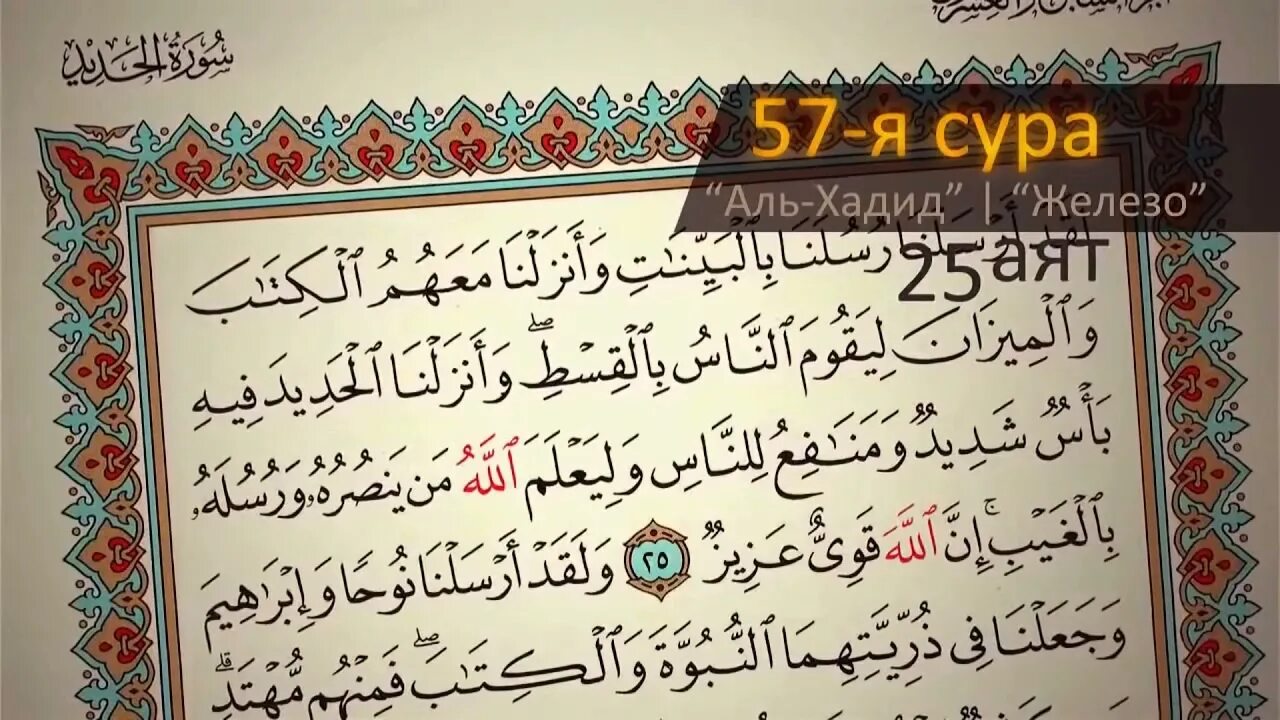 سُورَةُ الحَدِيدِ
57-я сура
“Аль-Хадид” | “Железо”
25 аят
لَقَدْ أَرْسَلْنَا رُسُلَنَا بِٱلْبَيِّنَٰتِ وَأَنزَلْنَا مَعَهُمُ ٱلْكِتَٰبَ
وَٱلْمِيزَانَ لِيَقُومَ ٱلنَّاسُ بِٱلْقِسْطِۖ وَأَنزَلْنَا ٱلْحَدِيدَ فِيهِ
بَأْسٌ شَدِيدٌ وَمَنَٰفِعُ لِلنَّاسِ وَلِيَعْلَمَ ٱللَّهُ مَن يَنصُرُهُۥ وَرُسُلَهُۥ
بِٱلْغَيْبِۚ إِنَّ ٱللَّهَ قَوِىٌّ عَزِيزٌ ٢٥ وَلَقَدْ أَرْسَلْنَا نُوحًا وَإِبْرَٰهِيمَ
وَجَعَلْنَا فِى ذُرِّيَّتِهِمَا ٱلنُّبُوَّةَ وَٱلْكِتَٰبَۖ فَمِنْهُم مُّهْتَدٍۖ